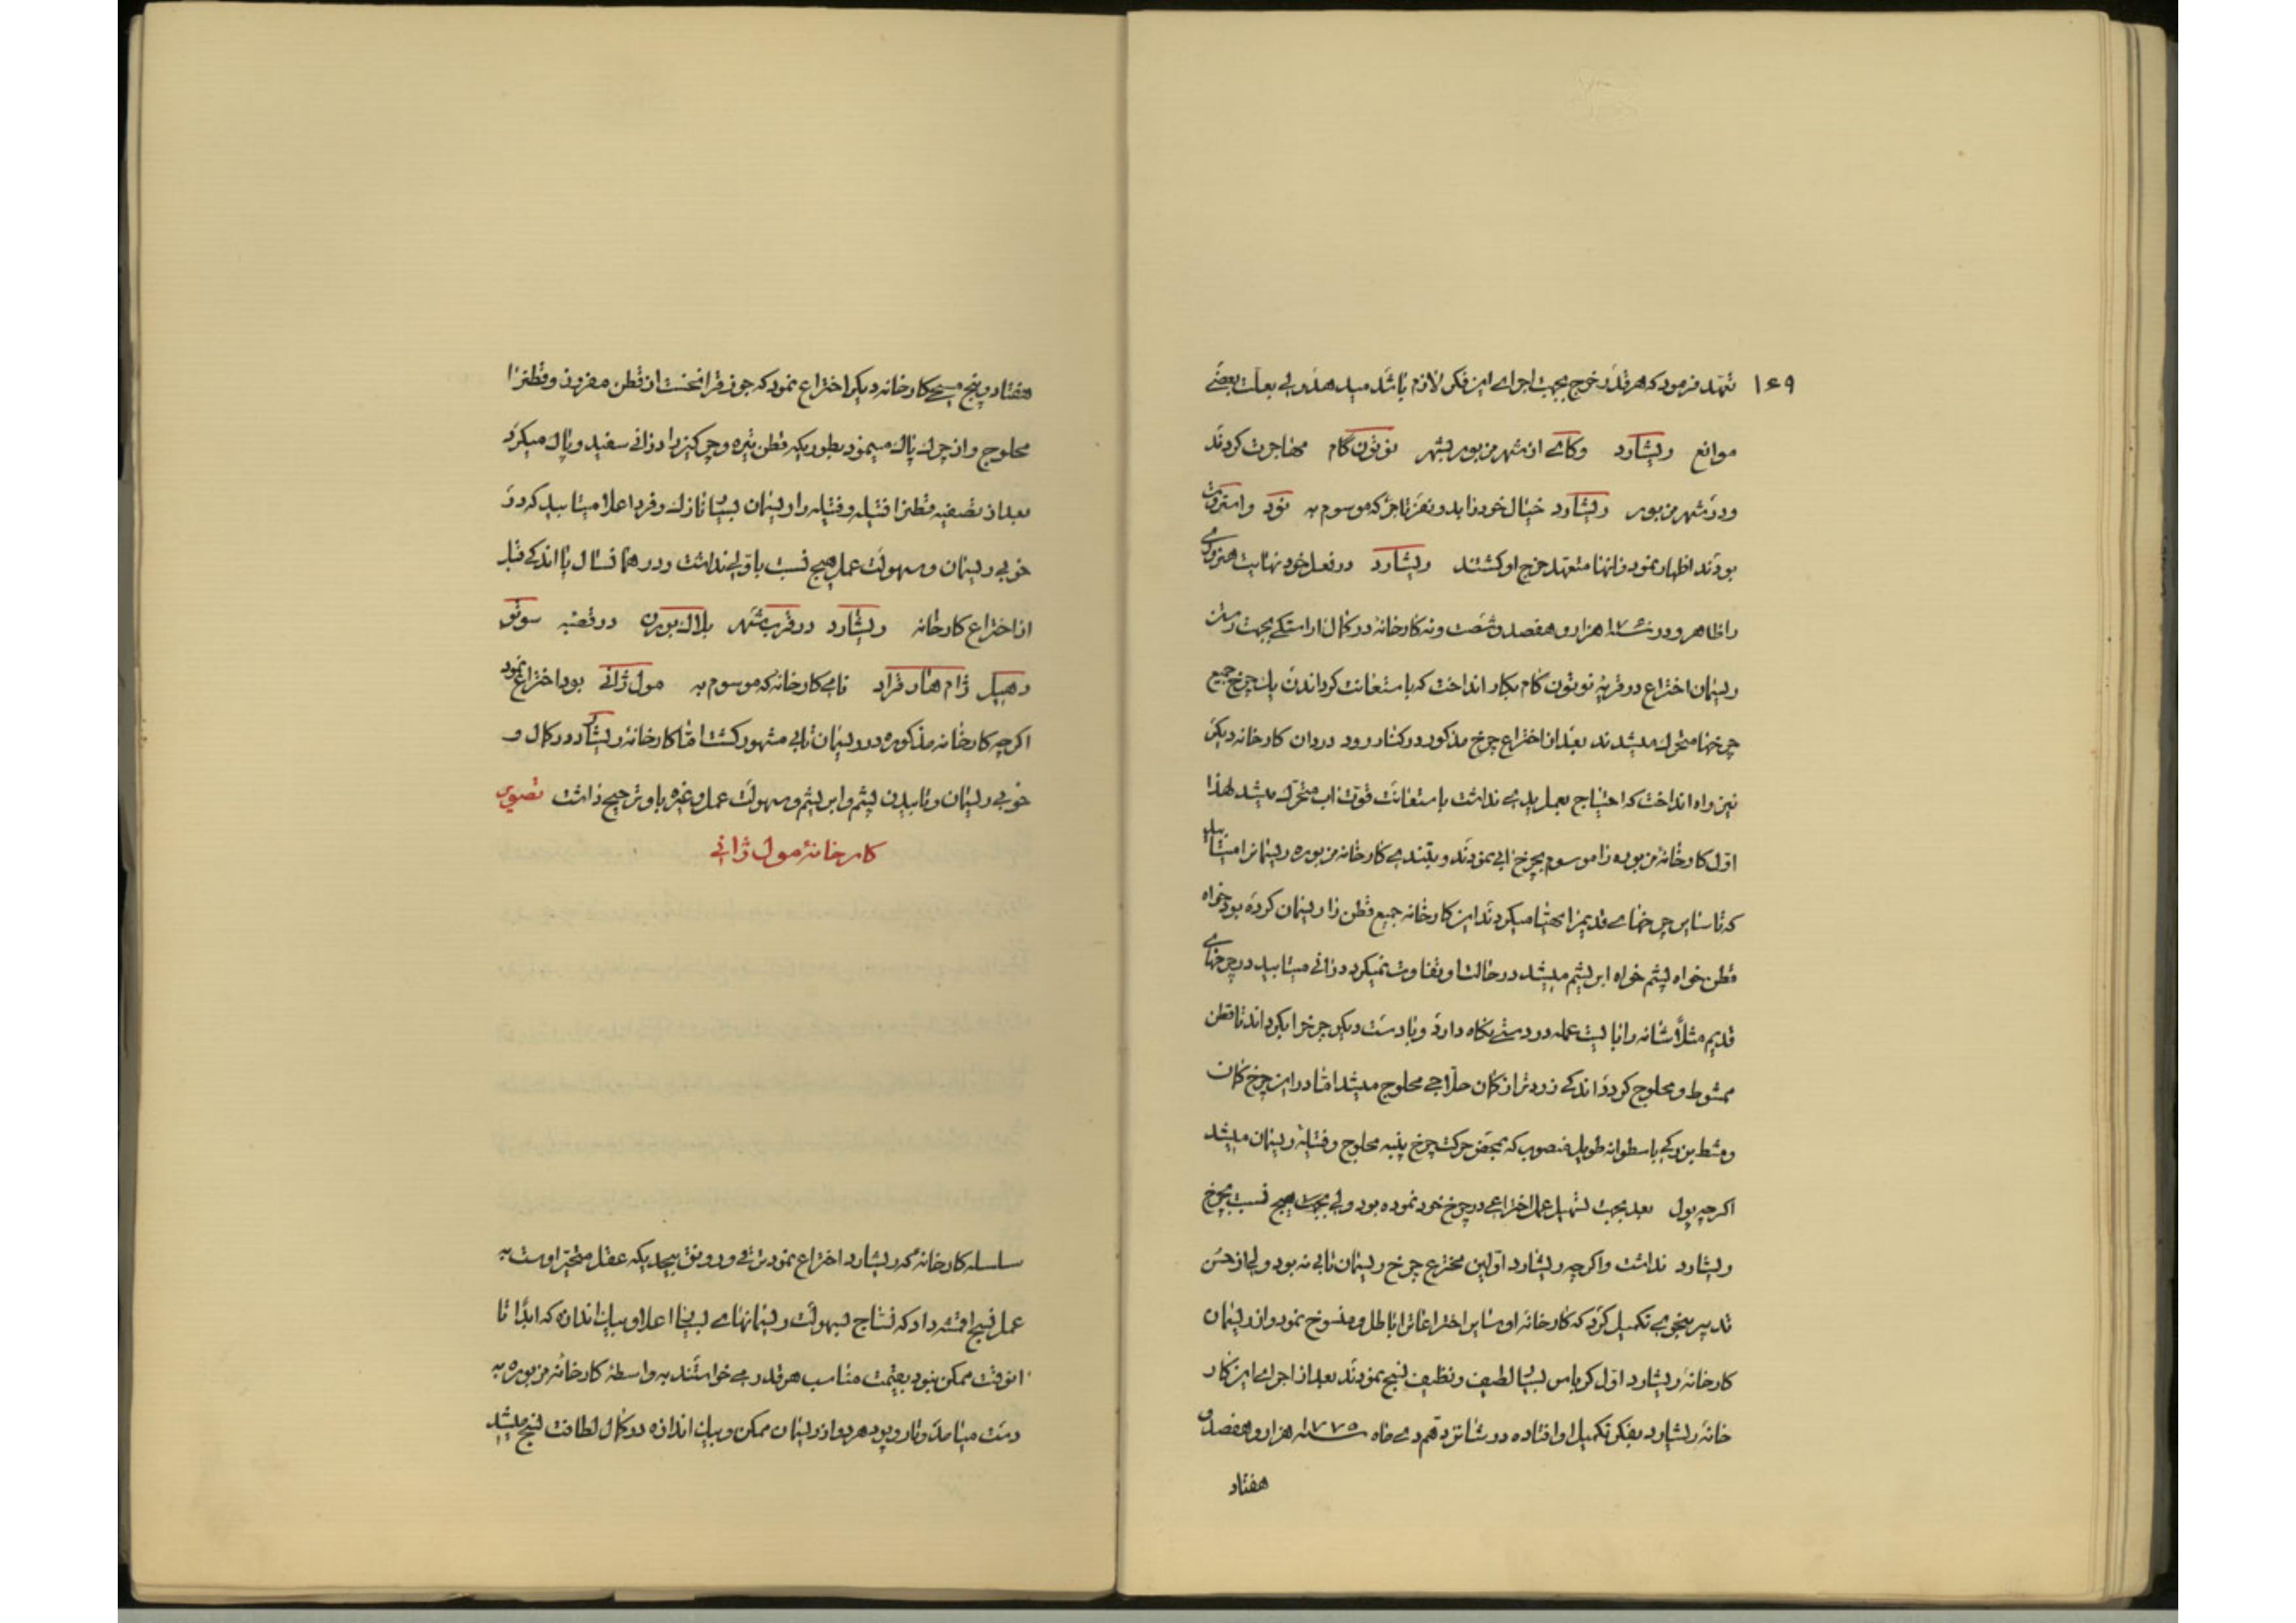 ۱۶۹
تعهد فرمود که هر قدر خرج بجهت اجرای این فکر لازم باشد میدهد ولی بعلت بعضی
موانع ریشارد و کامی از شهر مزبور بشهر نوتون گام مهاجرت کردند
و در شهر مزبور ریشارد خیال خود را بدو نفر تاجر که موسوم به نود و استروت
بودند اظهار نمود و انها متعهد خرج او کشتند ریشارد در فعل خود نهایت هنروری
را ظاهر و در سنه ۱۷۶۹ هزار و هفصد و شصت و نه کارخانه در کمال اراستکی بجهت رشتن
ریسمان اختراع در قریه نوتون کام بکار انداخت که باستعانت کرداندن یک چرخ جمیع
چرخها متحرک میشدند بعد از اختراع چرخ مذکور در کنار رود دردان کارخانه دیکر
نیز راه انداخت که احتیاج بعمل یدی نداشت باستعانت قوت اب متحرک میشد لهذا
اول کارخانهٔ مزبوره را موسوم بچرخ ابی نمودند و بلندی کارخانه مزبوره ریسمانرا میتابید
که تا سایر چرخهای قدیم را مهیا میکردند این کارخانه جمیع قطن را ریسمان کرده بود خواه
قطن خواه پشم خواه ابریشم میشد در حالت او تفاوت نمیکرد و زانی میتابید در چرخهای
قدیم مثلا شانه را بایست عمله در دستی نکاه دارد و با دست دیکر چرخرا بکرداند تا قطن
ممشوط و محلوج کردد اندکی زودتر از کمان حلاجی محلوج میشد اما در این چرخ کمان
و مشط بزرکی باسطوانه طویل منصوب که بمحض حرکت چرخ پنبه محلوج و فتیله ریسمان میشد
اکرچه پول بعد بجهت تسهیل عمل اختراعی در چرخ خود نموده بود ولی بجهت هیچ نسبت بچرخ
ریشارد نداشت و اکرچه ریشارد اولین مخترع چرخ ریسمان تابی نه بود ولی از حسن
تدبیر بنحوی تکمیل کرد که کارخانه او سایر اختراعاترا باطل و منسوخ نمود و از ریسمان
کارخانهٔ ریشارد اول کرباس بسیا لطیف و نظیف نسج نمودند بعد از اجرای این کار
خانه ریشارد بفکر تکمیل او افتاده در شانزدهم دی ماه سنه ۱۷۷۵ هزار و هفصد و
هفتاد
هفتاد و پنج مسیحی کارخانه دیکر اختراع نمود که جوزقرا نخست از قطن مفروز و قطنرا
محلوج و از چرک پاک مینمود بطوریکه قطن تیره و چرکین را در زانی سفید و پاک میکرد
بعد از تصفیه قطنرا فتیله و فتیله را ریسمان بسیا نازک و فرد اعلا میتابید که در
خوبی ریسمان و سهولت عمل هیچ نسبت باولی نداشت و در همانسال یا اندکی قبل
از اختراع کارخانه ریشارد در قرب شهر بلاک بوره در قصبه سوتو
دهیل ژام هنار فراد نامی کارخانه که موسوم به مول ژانی بود اختراع نمود
اکرچه کارخانه مذکوره در ریسمان تابی مشهور کشت اما کارخانهٔ ریشارد در کمال و
خوبی ریسمان و تابیدن پشم و ابریشم و سهولت عمل و غیره باو ترجیح داشت تصویر
کارخانهٔ مول ژانی
سلسله کارخانهٔ که ریشارد اختراع نمود ترقی و رونق بیحدیکه عقل متحیر اوست به
عمل نسیج اقمشه داد که نساج بسهولت ریسمانهای بسیا اعلا و بیک اندازه که ابدا تا
انوقت ممکن نبود بقیمت مناسب هر قدر می خواستند به واسطهٔ کارخانهٔ مزبوره به
دست میامد و تار و پود هر دو از ریسمان ممکن و بیک اندازه در کمال لطافت نسج میشد